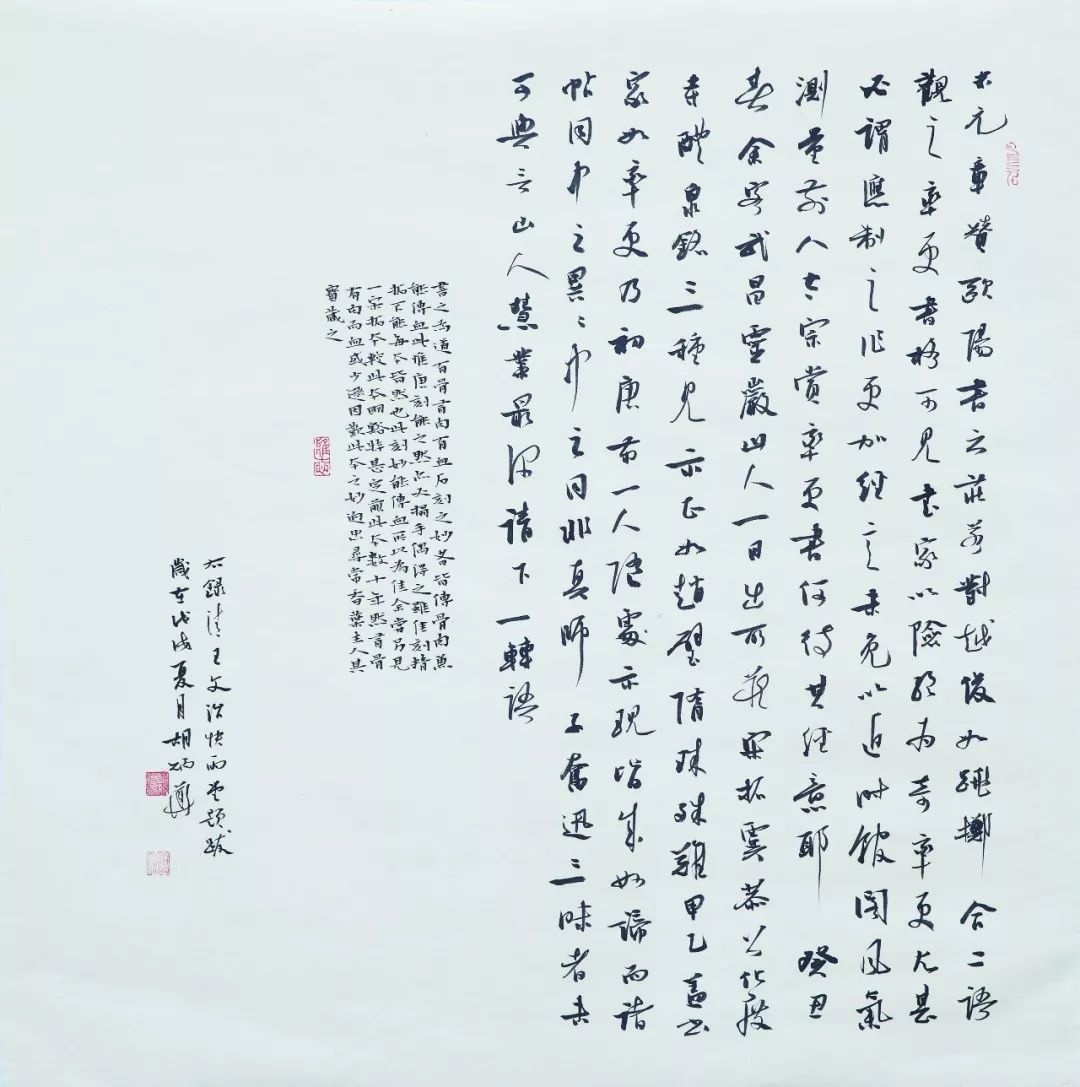 米元章贊歐陽書云莊若對越俊如跳擲合二語
觀之率更書格可見書家以險絕為奇率更尤甚
必謂應制之作更加經意未免以近時館閣風氣
測量前人太宗賞率更書何待其經意耶癸丑
春余客武昌靈巖山人一日出所藏宋拓虞恭公化度
寺醴泉銘三種見示正如趙璧隋珠殊難甲乙蓋書
家如率更乃初唐第一人隨處示現皆成妙諦而諸
帖同中之異異中之同非真師子奮迅三昧者未
可與言山人慧業最深請下一轉語
書之為道有骨有肉有血石刻之妙者皆傳骨肉無
能傳血此惟唐刻能之然亦又搨手偶得之雖佳刻精
拓不能每本皆然也此刻妙能傳血所以為佳余嘗另見
一宋拓本較此本明豁特甚定前此本數十年然有骨
有肉而血或少遜因歎此本之妙迥出尋常香葉主人其
寶藏之
右錄清王文治快雨堂題跋
歲在戊戌夏月胡炳華